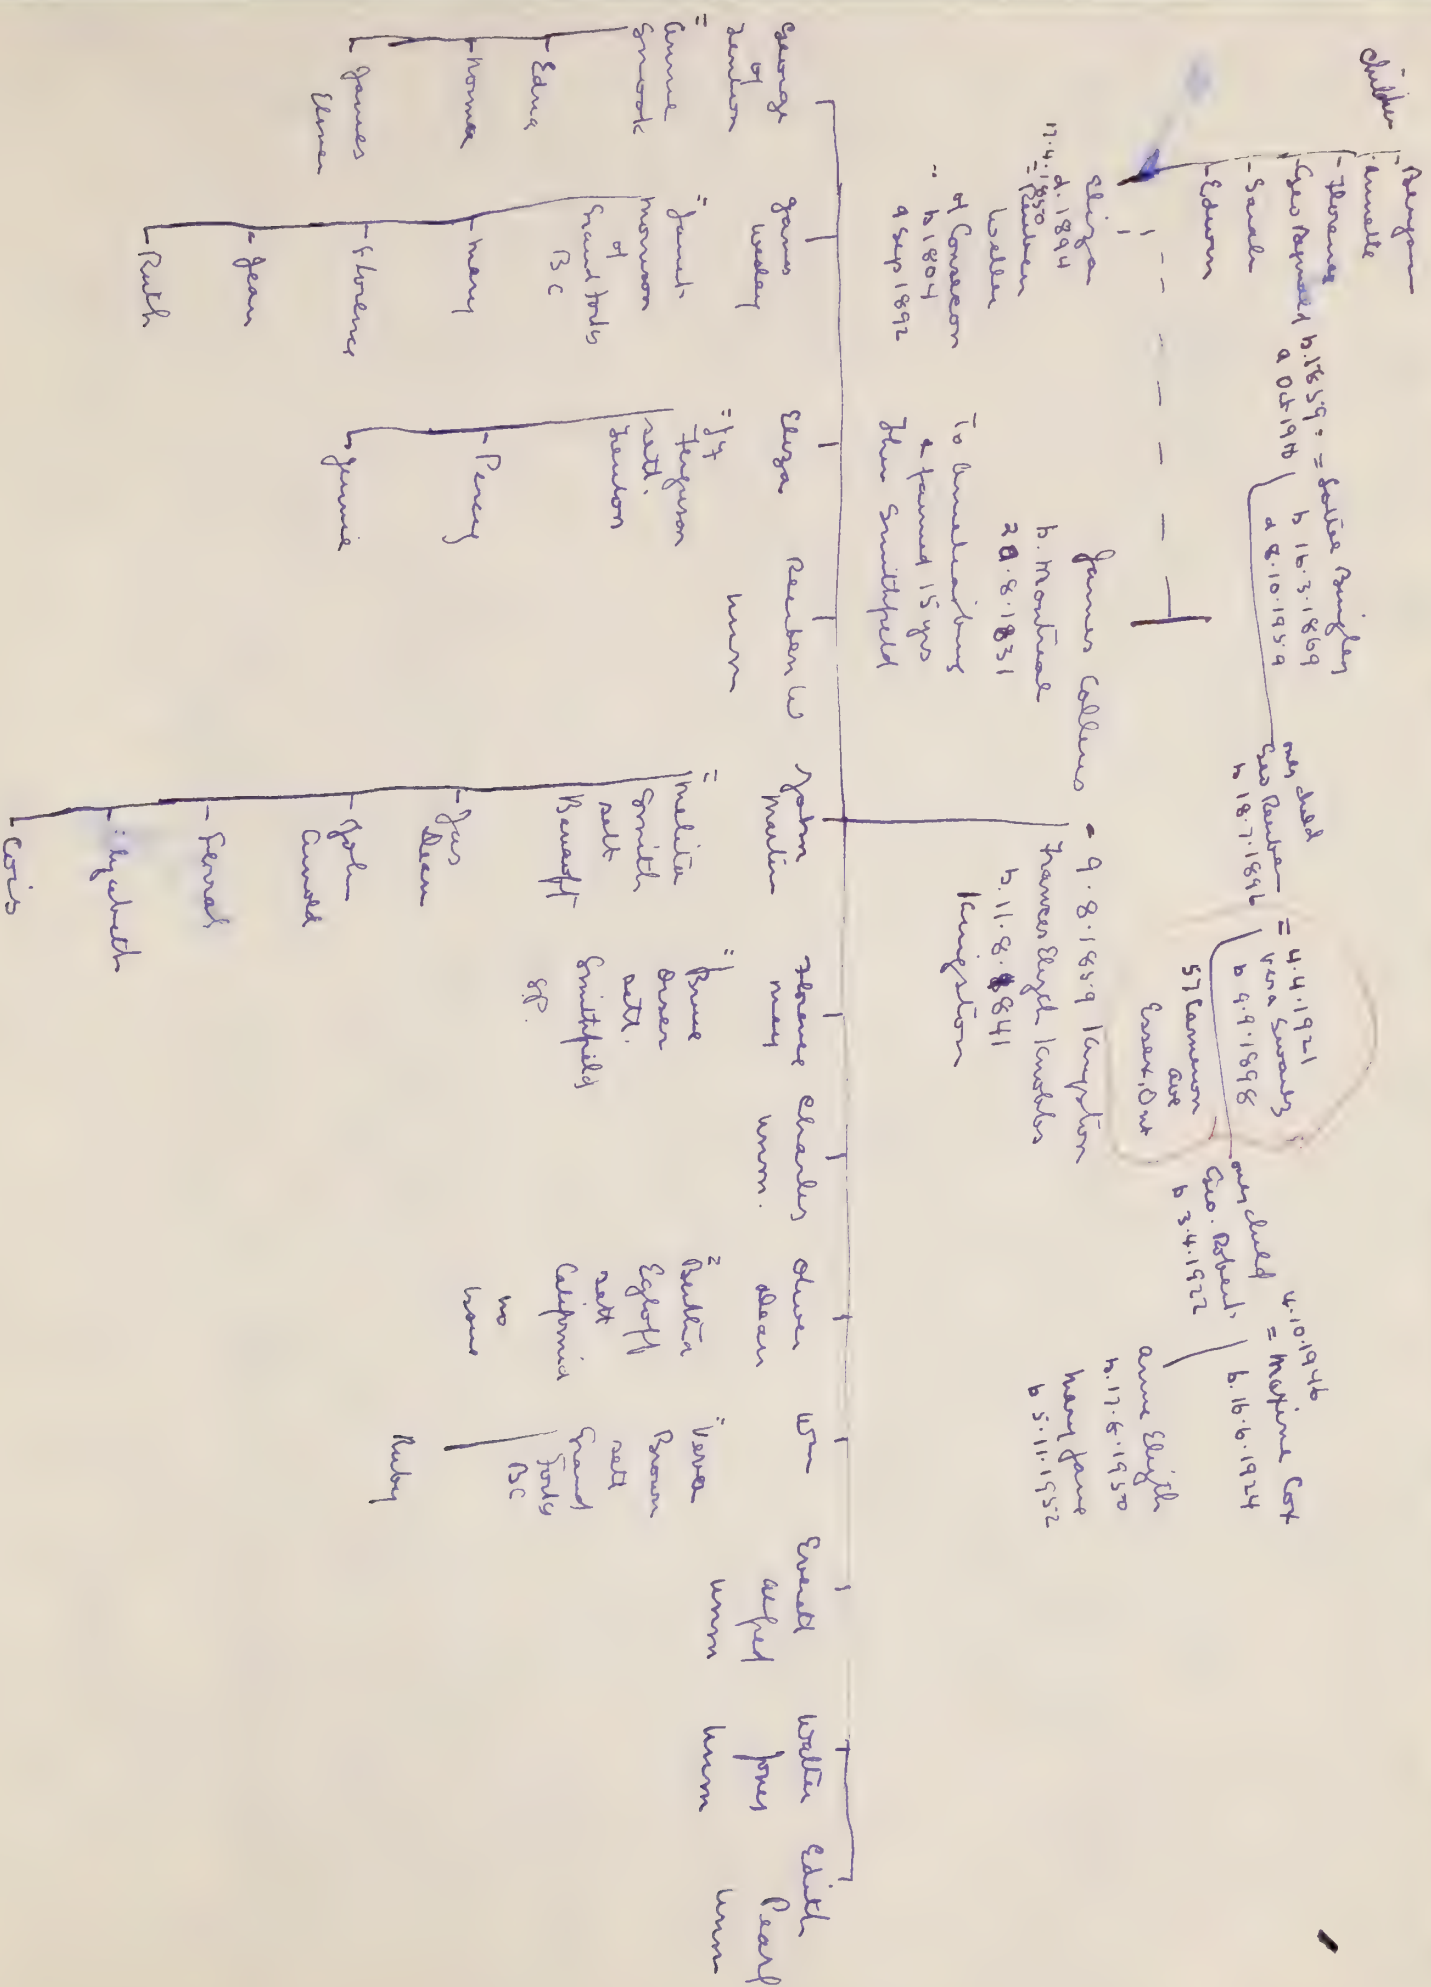 children
Benjam
Annette
Florence
Geo Raynard b.1859 =
d Oct 1910
Sarah
Edwin
= Sallie Bingley
b 16.3.1869
d 8.10.1959
only child
Geo Reuben
b 18.7.1896
= 4.4.1921
Vera Swartz
b 9.9.1898
57 Cameron
Ave
Essex, Ont
only child
Geo. Robert
b 3.4.1922
4.10.1946
= Maxine Cox
b. 16.6.1924
Anne Elizth
b. 17.6.1950
Mary Jane
b 5.11.1952
Eliza
d. 1894
17.4.1850
= Reuben
Weller
of Consecon
b 1804
d Sep 1892
James Collins
b. Montreal
28.8.1831
To Ameliasburg
& farmed 15 yrs
then Smithfield
= 9.8.1859 Kingston
Frances Elizth Knobbs
b. 11.8.1841
Kingston
George
of
Trenton
=
Anne
Snook
Edna
Norma
James
Elmer
James
Wesley
=
Janet
Morrison
of
Grand Forks
BC
Mary
Florence
Jean
Ruth
Eliza
=
Ferguson
sett.
Trenton
Percy
Jennie
Reuben W
unm
John
Martin
=
Melita
Smith
sett
Bancroft
Jas
Dean
John
Arnold
Ferral
Elyabeth
Coris
Florence
May
=
Bruce
Orser
sett.
Smithfield
SP.
Charles
unm.
Oliver
Dean
=
Bertha
Egloff
sett
California
no
issue
Wm
=
Verva
Brown
sett
Grand
Forks
BC
Ruby
Everett
Alfred
unm
Walter
Jones
unm
Edith
Pearl
unm